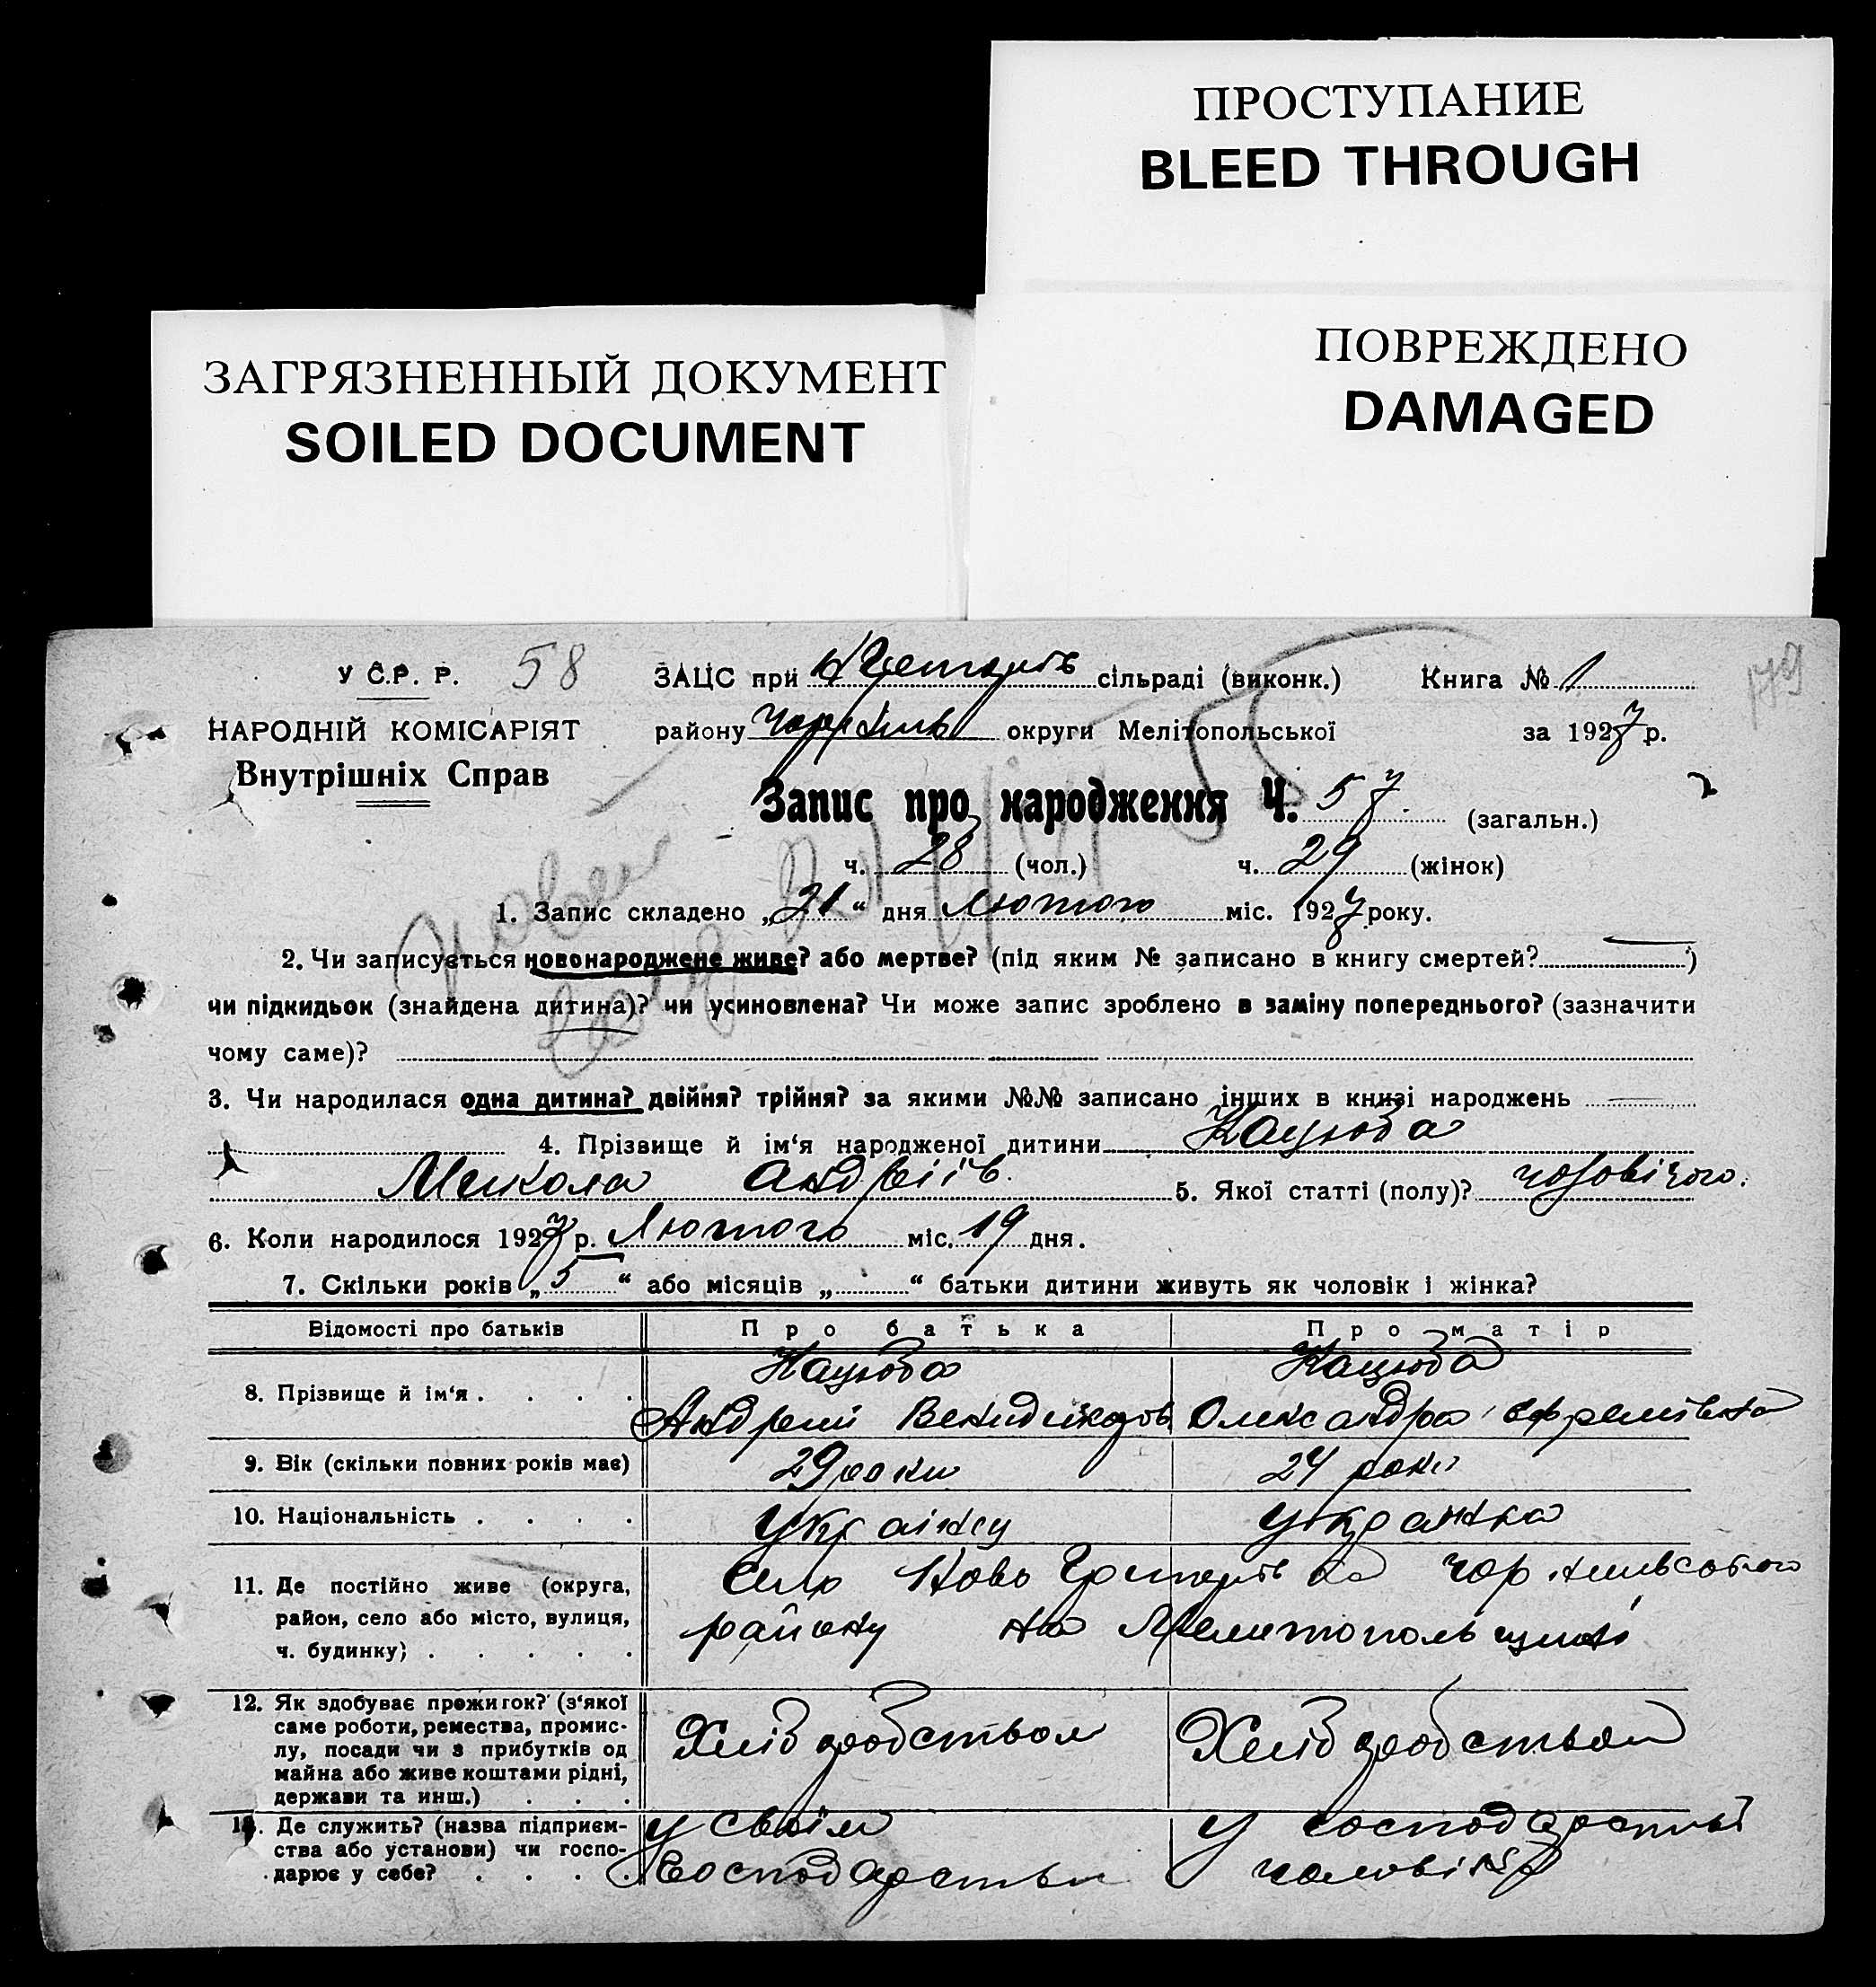 ПРОСТУПАНИЕ
BLEED THROUGH
ЗАГРЯЗНЕННЫЙ ДОКУМЕНТ
SOILED DOCUMENT
ПОВРЕЖДЕНО
DAMAGED
179
У С.Р. Р. 58
ЗАЦС при сільраді (виконк.) Книга № 1
НАРОДНІЙ КОМІСАРІЯТ
Внутрішніх Справ
району округи Мелітопольської за 1927 р.
Запис про народження Ч. 57. (загальн.)
ч. 28 (чол.) ч. 29 (жінок)
1. Запис складено „21“ дня Лютого міс. 1927 року.
2. Чи записується новонароджене живе? або мертве? (під яким № записано в книгу смертей? —)
чи підкидьок (знайдена дитина)? чи усиновлена? Чи може запис зроблено в заміну попереднього? (зазначити
чому саме)?
3. Чи народилася одна дитина? двійня? трійня? за якими №№ записано інших в книзі народжень —
4. Прізвище й ім‘я народженої дитини Кацюба
Микола Андріїв. 5. Якої статті (полу)? чоловічого.
6. Коли народилося 1927 р. Лютого міс. 19 дня.
7. Скільки років „5“ або місяців „ “ батьки дитини живуть як чоловік і жінка?
Відомості про батьків Про батька Про матір
8. Прізвище й ім‘я . . . . Кацюба Кацюба
Андрей Олександра Єфремівна
9. Вік (скільки повних років має) 29 роки 24 роки
10. Національність . . . . Українц Українка
11. Де постійно живе (округа,
район, село або місто, вулиця,
ч. будинку) . . . . .
Село Ново
району на Мелитопольщині
12. Як здобуває прожиток? (з‘якої
саме роботи, ремества, промис-
лу, посади чи з прибутків од
майна або живе коштами рідні,
держави та инш.) . . .
Хлібробством Хлібробством
13. Де служить? (назва підприєм-
ства або установи) чи госпо-
дарює у себе? . . . .
у своїм У господарстві
Господарстви чоловіка